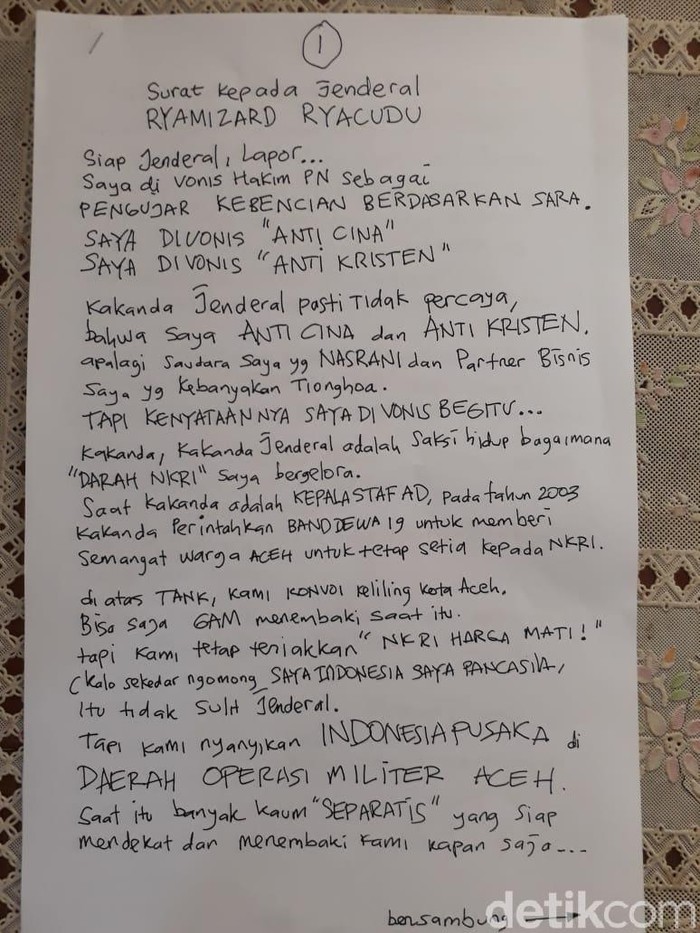 1
Surat Kepada Jenderal
RYAMIZARD RYACUDU
Siap Jenderal, Lapor...
Saya di vonis Hakim PN sebagai
PENGUJAR KEBENCIAN BERDASARKAN SARA.
SAYA DIVONIS "ANTI CINA"
SAYA DI VONIS "ANTI KRISTEN"
Kakanda Jenderal pasti Tidak percaya,
bahwa saya ANTI CINA dan ANTI KRISTEN.
apalagi Saudara Saya yg NASRANI dan Partner Bisnis
Saya yg Kebanyakan Tionghoa.
TAPI KENYATAANNYA SAYA DI VONIS BEGITU...
Kakanda, Kakanda Jenderal adalah Saksi hidup bagaimana
"DARAH NKRI" Saya bergelora.
Saat Kakanda adalah KEPALA STAF AD, pada tahun 2003
Kakanda Perintahkan BAND DEWA 19 untuk memberi
Semangat warga ACEH untuk tetap setia kepada NKRI.
di atas TANK, kami KONVOI keliling kota Aceh.
Bisa saja GAM menembaki saat itu.
tapi kami tetap teriakkan "NKRI HARGA MATI!"
(kalo sekedar ngomong SAYA INDONESIA SAYA PANCASILA,
itu tidak sulit Jenderal.
Tapi kami nyanyikan INDONESIA PUSAKA di
DAERAH OPERASI MILITER ACEH.
Saat itu banyak kaum "SEPARATIS" yang siap
mendekat dan menembaki kami kapan saja---
bersambung →
detikcom